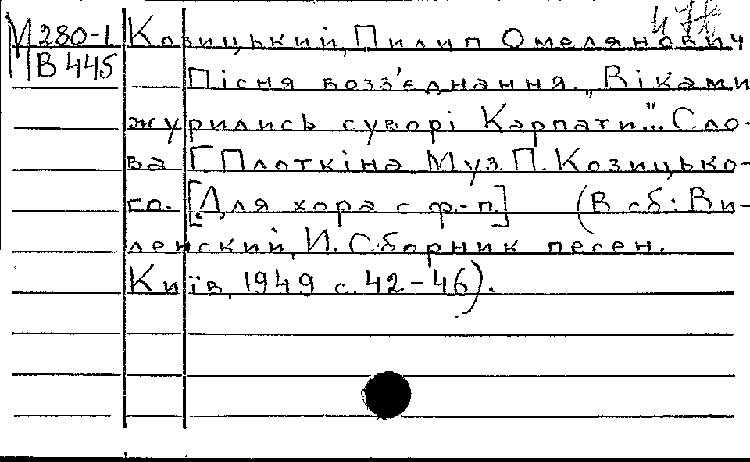 М 280-1 Козицький, Пилип Омелянович
В 445
Пісня возз'єднання. „Віками
журились суворі Карпати..." Сло-
ва Г. Плоткіна. Муз. П. Козицько-
го. [Для хора с ф.-п.] (В сб: Ви-
ленский, И. Сборник песен.
Київ, 1949 с. 42-46).